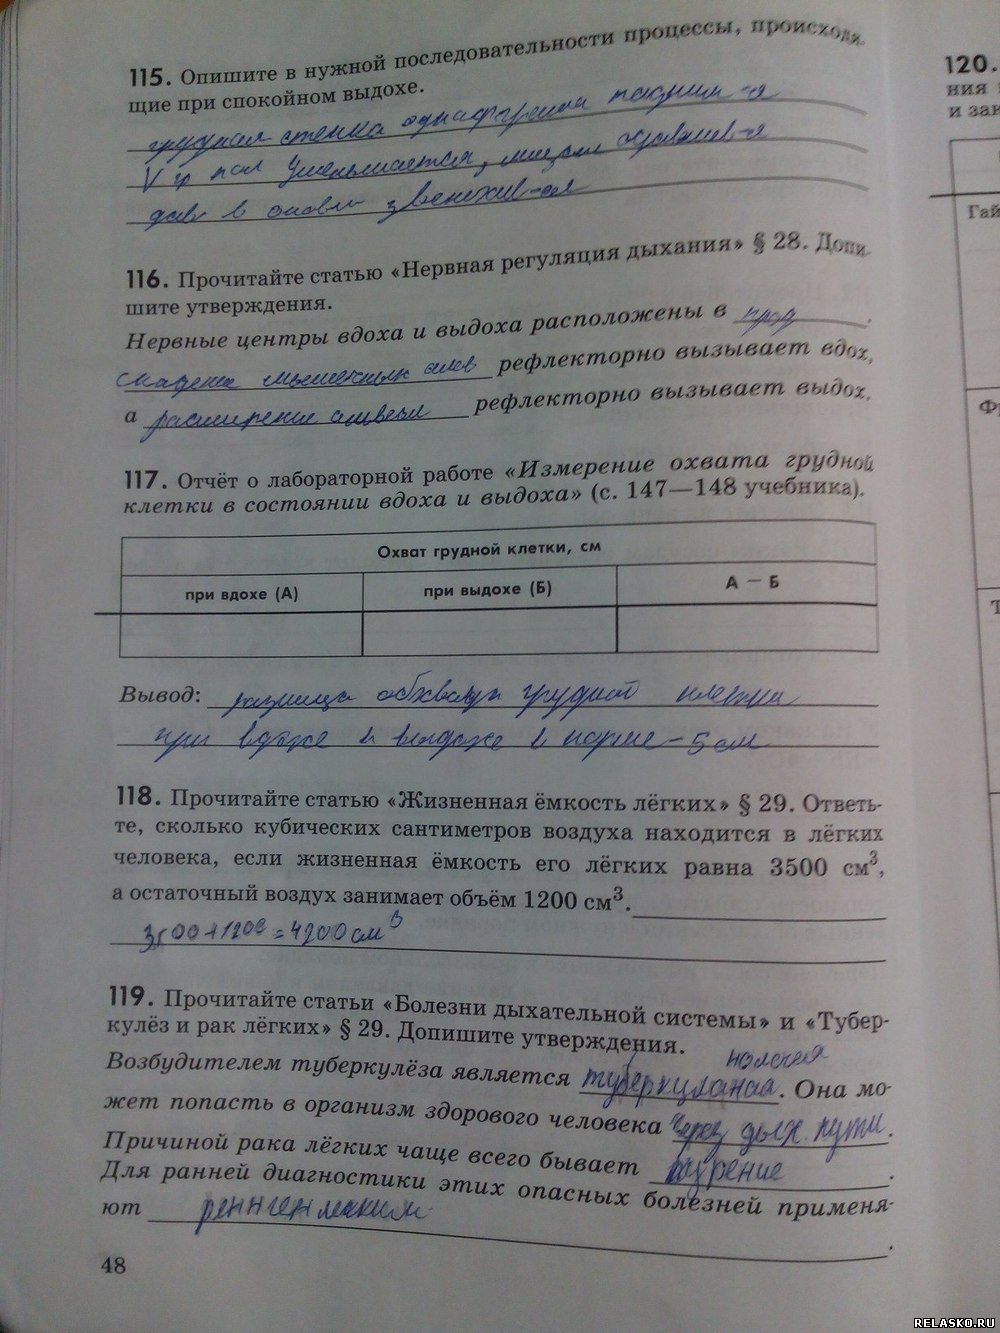 115. Опишите в нужной последовательности процессы, происходя-
щие при спокойном выдохе.
грудная стенка
V гр пол уменьшается,
116. Прочитайте статью «Нервная регуляция дыхания» § 28. Допи-
шите утверждения.
Нервные центры вдоха и выдоха расположены в прод .
рефлекторно вызывает вдох,
а расширение рефлекторно вызывает выдох.
117. Отчёт о лабораторной работе «Измерение охвата грудной
клетки в состоянии вдоха и выдоха» (с. 147—148 учебника).
Охват грудной клетки, см
при вдохе (А) при выдохе (Б) А — Б
Вывод: разница обхвата грудной клетки
при вдохе и выдохе в норме - 5 см
118. Прочитайте статью «Жизненная ёмкость лёгких» § 29. Ответь-
те, сколько кубических сантиметров воздуха находится в лёгких
человека, если жизненная ёмкость его лёгких равна 3500 см³,
а остаточный воздух занимает объём 1200 см³.
3500+1200=4200 см³
119. Прочитайте статьи «Болезни дыхательной системы» и «Тубер-
кулёз и рак лёгких» § 29. Допишите утверждения.
палочка
Возбудителем туберкулёза является . Она мо-
жет попасть в организм здорового человека через дых. пути.
Причиной рака лёгких чаще всего бывает курение .
Для ранней диагностики этих опасных болезней применя-
ют .
48
120.
ния
и зан
Гай
Фр
Т
RELASKO.RU